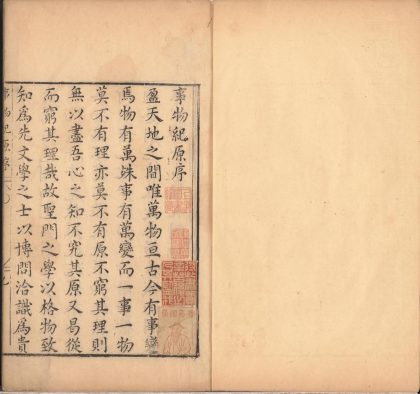 事物紀原序
盈天地之間唯萬物亘古今有事變
焉物有萬殊事有萬變而一事一物
莫不有理亦莫不有原不窮其理則
無以盡吾心之知不究其原又曷從
而窮其理哉故聖門之學以格物致
知爲先文學之士以博問洽識爲貴
事物紀原序